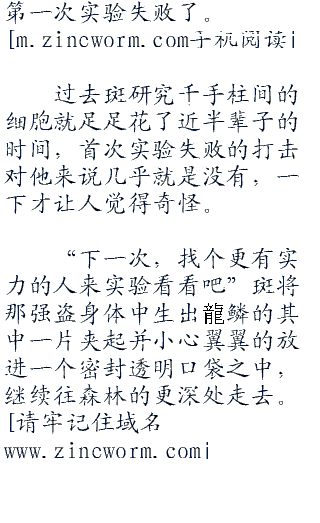 第一次实验失败了。
[m.zincworm.com手机阅读]
过去斑研究千手柱间的
细胞就足足花了近半辈子的
时间，首次实验失败的打击
对他来说几乎就是没有，一
下才让人觉得奇怪。
“下一次，找个更有实
力的人来实验看看吧”斑将
那强盗身体中生出龍鳞的其
中一片夹起并小心翼翼的放
进一个密封透明口袋之中，
继续往森林的更深处走去。
[请牢记住域名
www.zincworm.com]